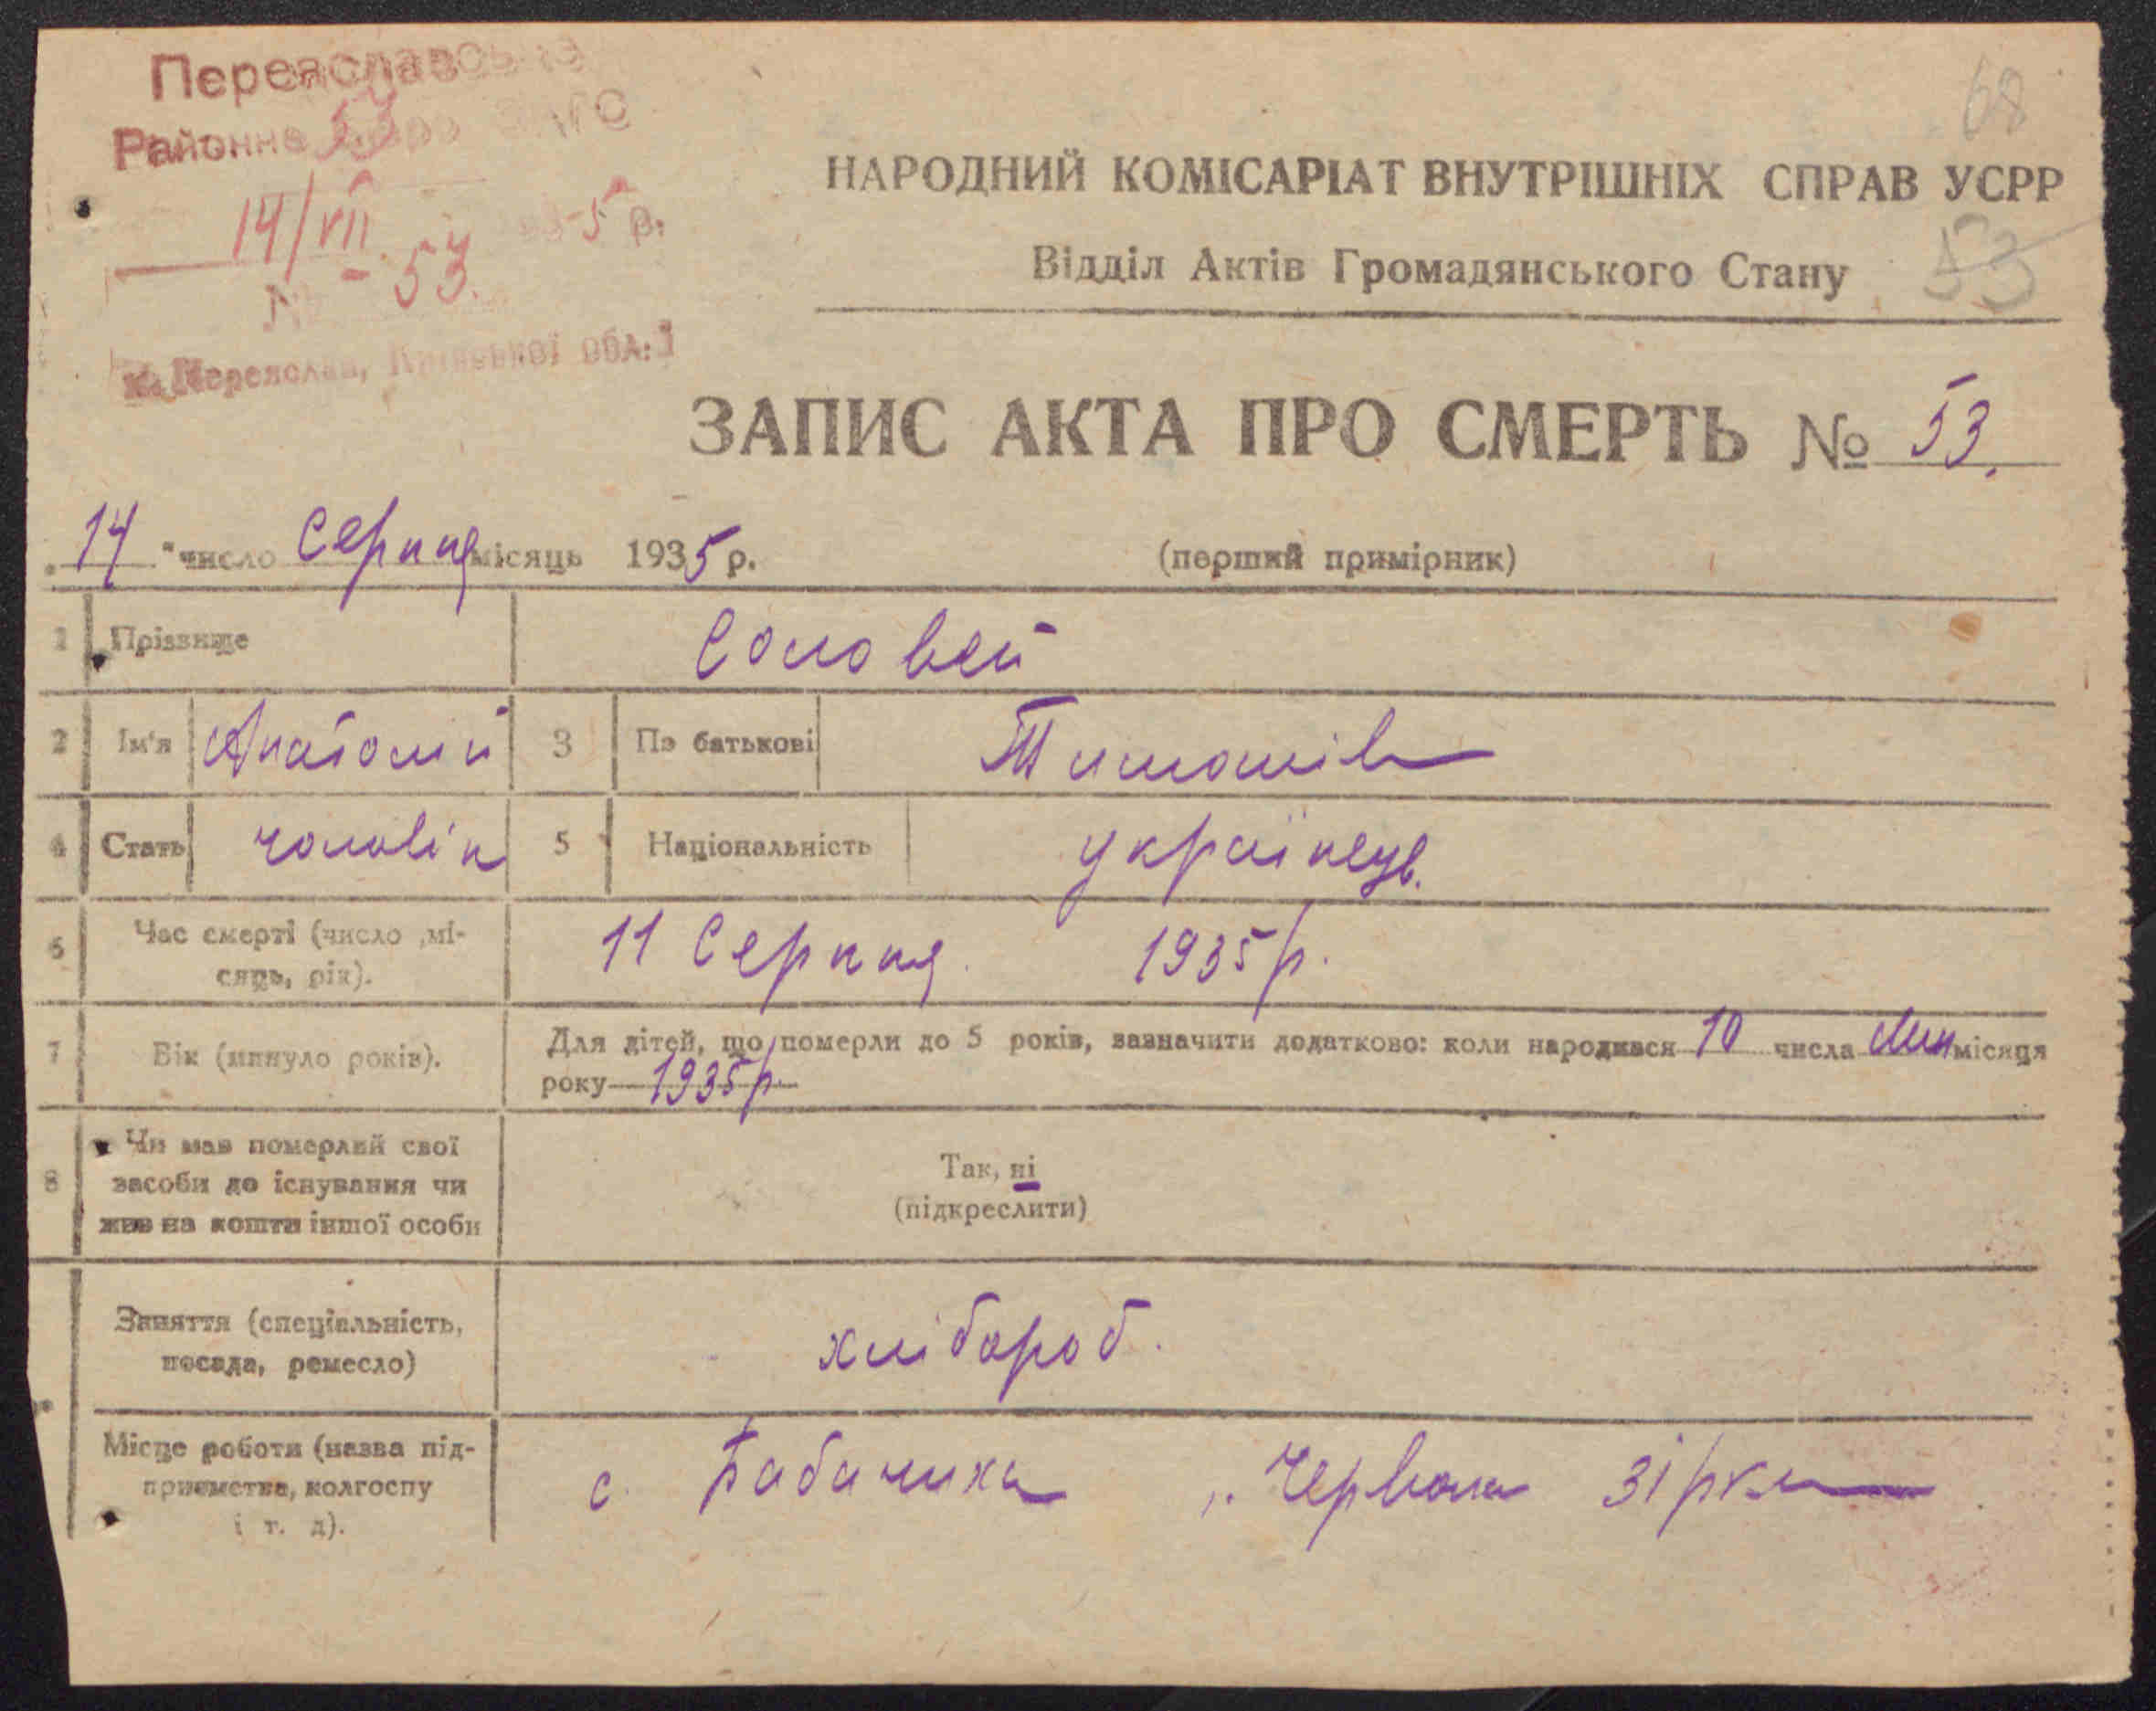 Переяславське
Районне бюро ЗАГС
53
14/VII 5 р.
№ - 53.
м. Переяслав, Київської обл.
68
НАРОДНИЙ КОМІСАРІАТ ВНУТРІШНІХ СПРАВ УСРР
Відділ Актів Громадянського Стану
53
ЗАПИС АКТА ПРО СМЕРТЬ № 53.
„14" число Серпня місяць 1935 р. (перший примірник)
1 Прізвище Соловей
2 Ім'я Анатолий 3 По батькові Тимошів
4 Стать чоловік 5 Національність українець.
6 Час смерті (число ,мі-
сяць, рік). 11 Серпня 1935 р.
7 Вік (минуло років). Для дітей, що померли до 5 років, зазначити додатково: коли народився 10 числа Лип місяця
року 1935 р.
8 Чи мав померлий свої
засоби до існування чи
жив на кошти іншої особи
Так, ні
(підкреслити)
Заняття (спеціальність,
посада, ремесло) хлібороб.
Місце роботи (назва під-
приємства, колгоспу
і т. д). с. Бабачиха „Червона зірка